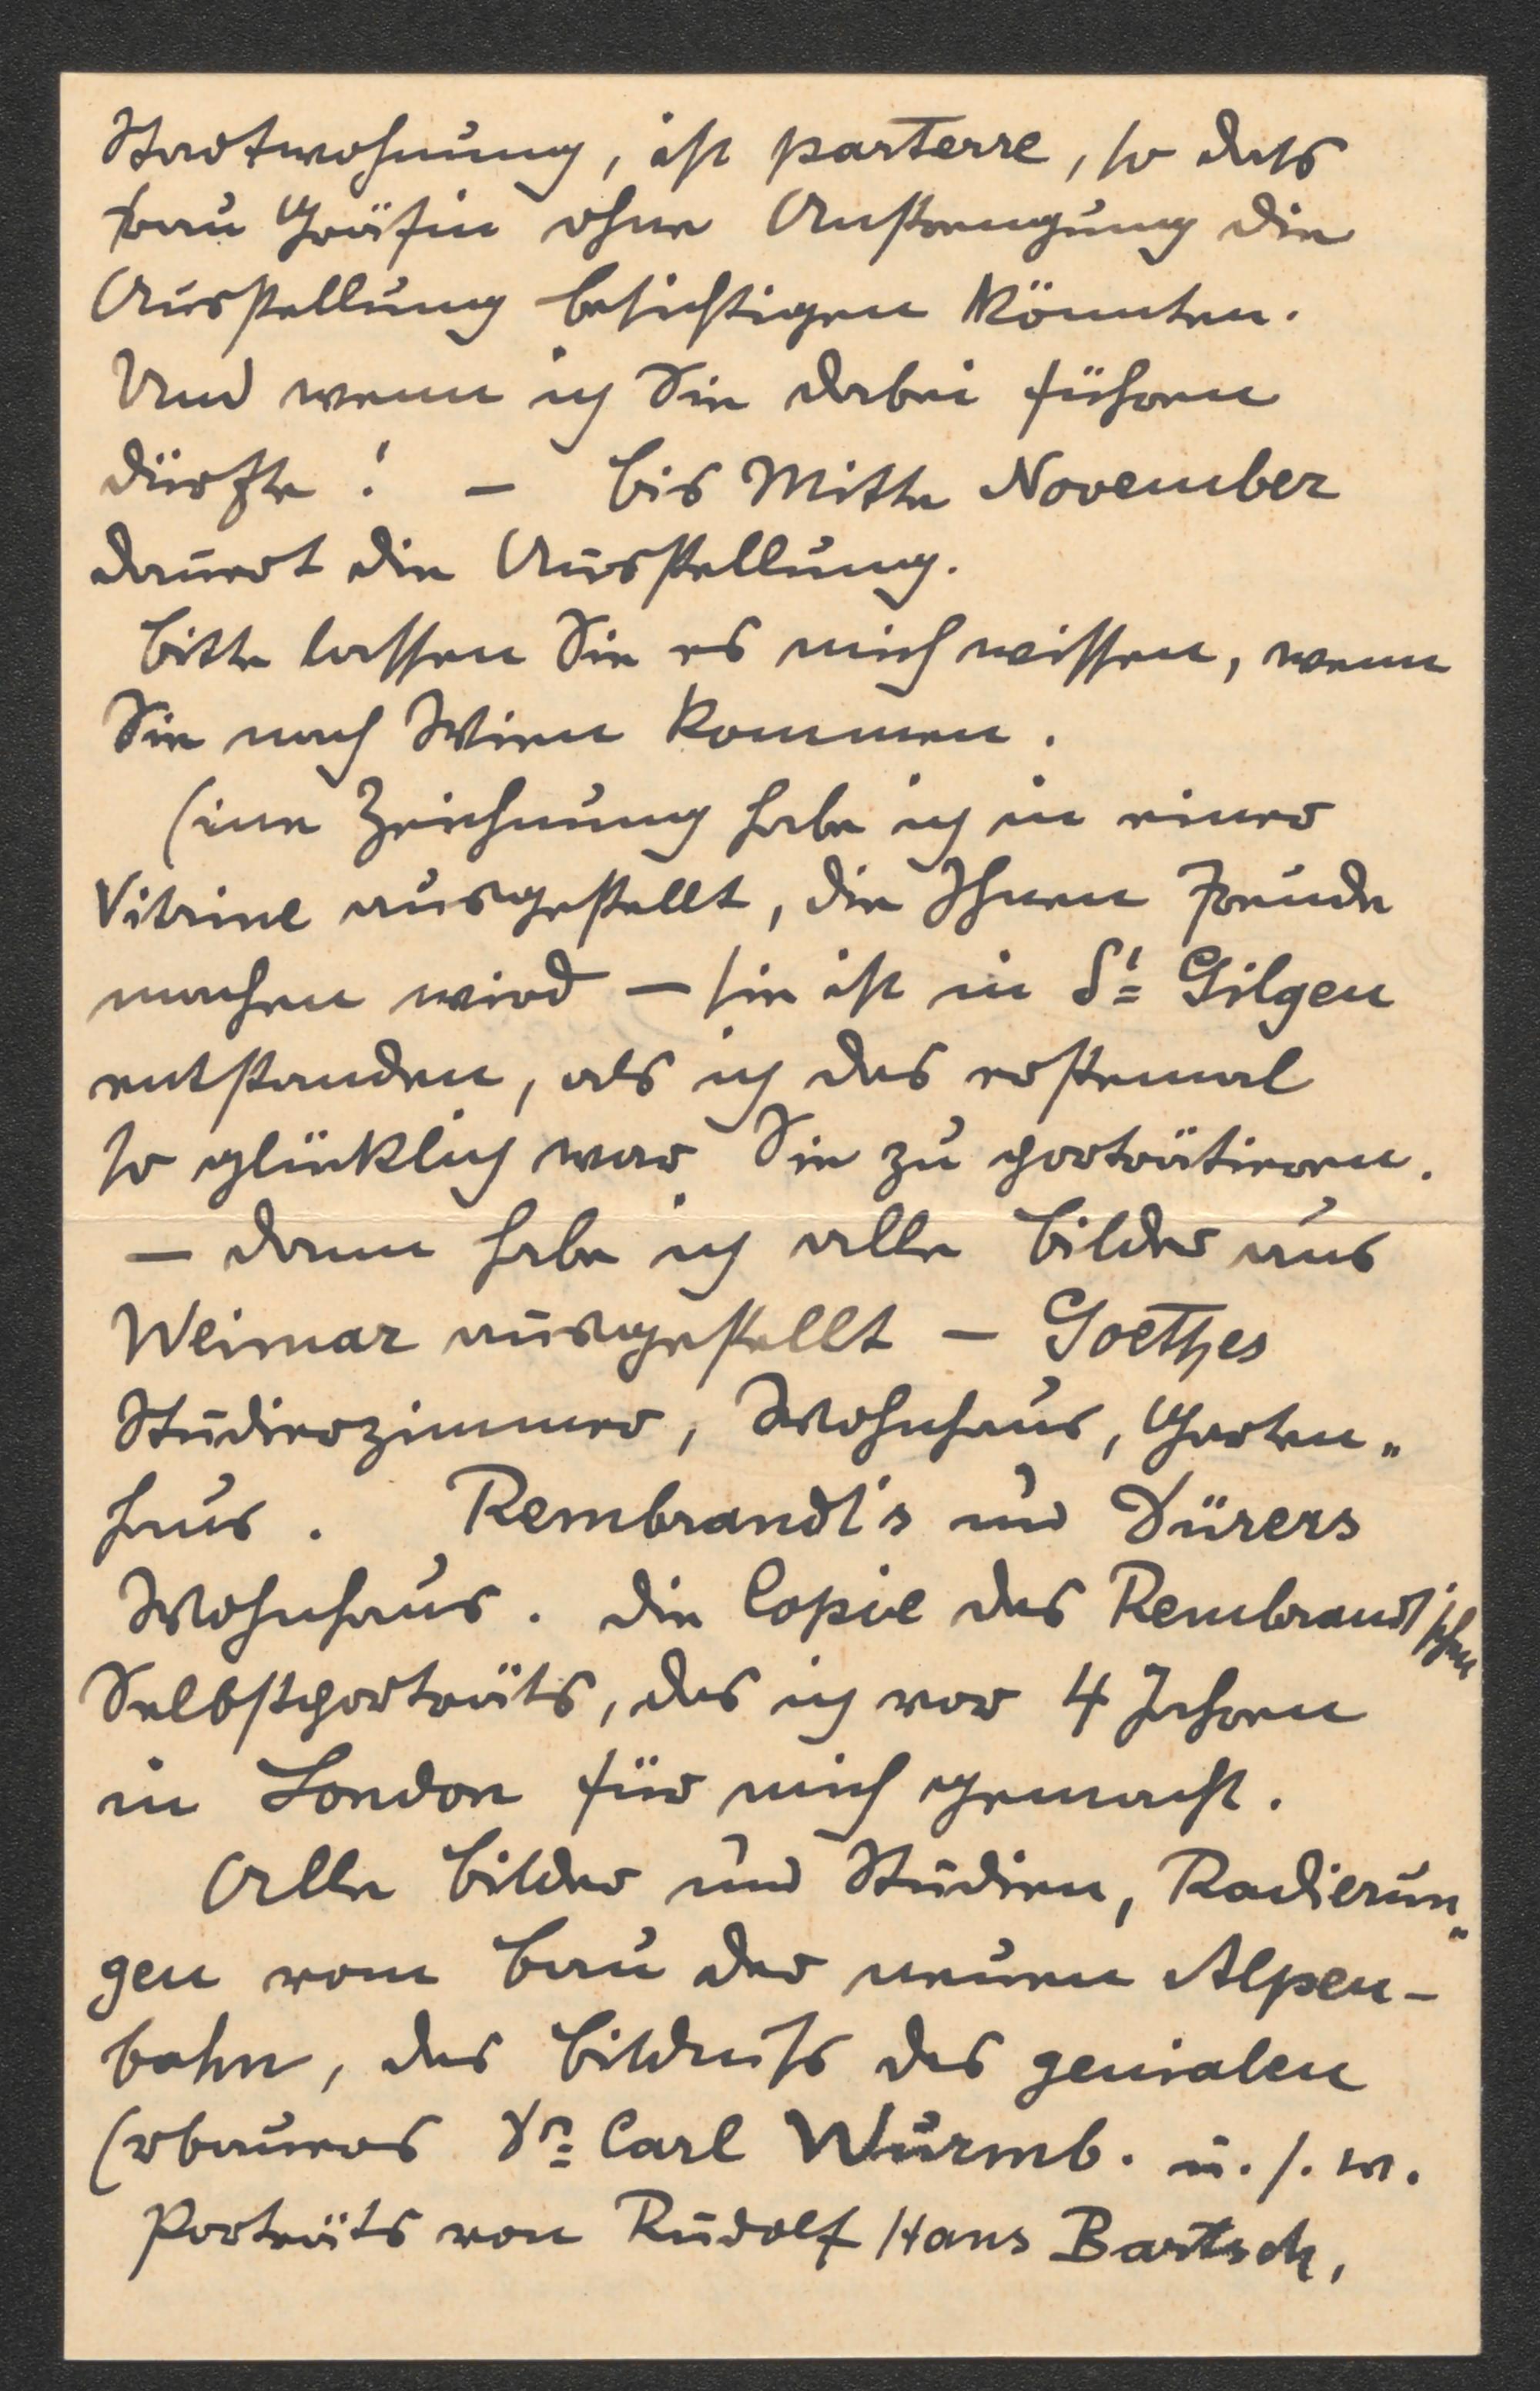 Stadtwohnung, ist parterre, so dass
Frau Gräfin ohne Anstrengung die
Ausstellung besichtigen könnten.
Und wenn ich Sie dabei führen
dürfte! – bis Mitte November
dauert die Ausstellung.
Bitte lassen Sie es mich wissen, wenn
Sie nach Wien kommen.
Eine Zeichnung habe ich in einer
Vitrine ausgestellt, die Ihnen Freude
machen wird – sie ist in St Gilgen
entstanden, als ich das erstemal
so glücklich war Sie zu porträtieren.
– dann habe ich alle Bilder aus
Weimar ausgestellt – Goethes
Studierzimmer, Wohnhaus, Garten„
haus. Rembrandt's und Dürers
Wohnhaus. Die Copie des Rembrandt'schen
Selbstporträts, das ich vor 4 Jahren
in London für mich gemacht.
Alle Bilder und Studien, Radierun„
gen vom Bau der neuen Alpen-
bahn, das Bildniss des genialen
Erbauers Dr Carl Wurmb. u. s. w.
Porträts von Rudolf Hans Bartsch,